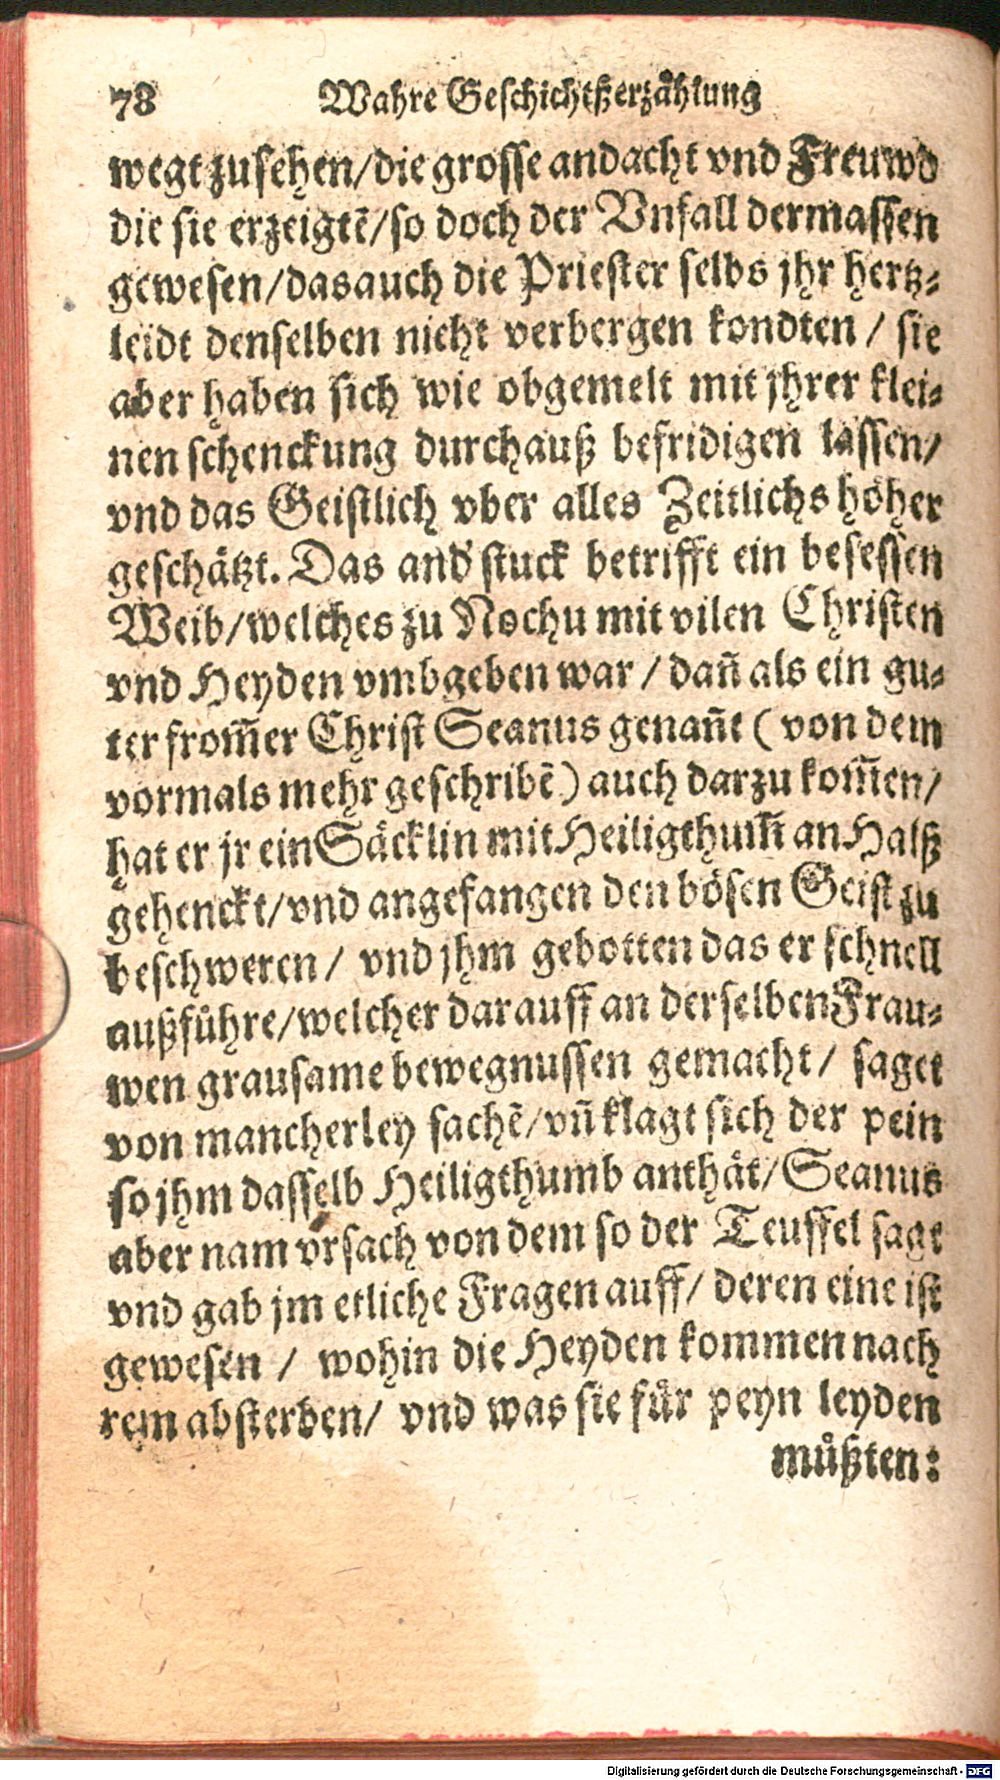 78 Wahre Geschichtßerzåhlung
wegt zusehen/die grosse andacht vnd Freuwd
die sie erzeigtē/so doch der Vnfall dermassen
gewesen/das auch die Priester selbs jhr hertz-
leidt denselben nicht verbergen kondten / sie
aber haben sich wie obgemelt mit jhrer klei-
nen schenckung durchauß befridigen lassen/
vnd das Geistlich vber alles Zeitlichs höher
geschätzt. Das and' stuck betrifft ein besessen
Weib/welches zu Nochu mit vilen Christen
vnd Heyden vmbgeben war / dañ als ein gu-
ter from̄er Christ Seanus genañt ( von dem
vormals mehr geschribē ) auch darzu kom̄en/
hat er jr ein Säcklin mit Heiligthum̄ an Halß
gehenckt/vnd angefangen den bösen Geist zu
beschweren / vnd jhm gebotten das er schnell
außfůhre/welcher darauff an derselben Frau-
wen grausame bewegnussen gemacht/ saget
von mancherley sachē/vñ klagt sich der pein
so jhm dasselb Heiligthumb anthät/Seanus
aber nam vrsach von dem so der Teuffel sagt
vnd gab jm etliche Fragen auff/ deren eine ist
gewesen / wohin die Heyden kommen nach
rem absterben/ vnd was sie für peyn leyden
můßten:
Digitalisierung gefördert durch die Deutsche Forschungsgemeinschaft - DFG